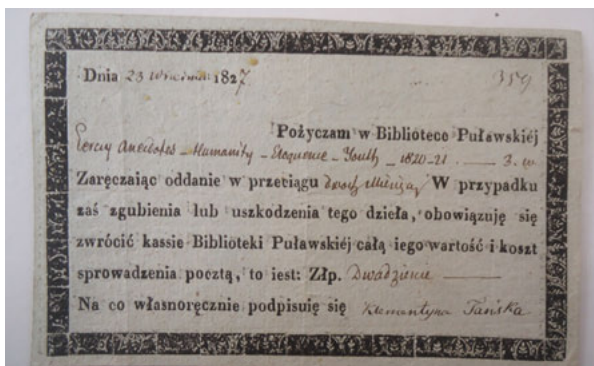 Dnia 23 Września 1827 359
Pożyczam w Bibliotece Puławskiéj
Percy Anecdotes - Humanity - Eloquence - Youth - 1820-21. — 3. w.
Zaręczaiąc oddanie w przeciągu dwóch Miesięcy W przypadku
zaś zgubienia lub uszkodzenia tego dzieła, obowiązuję się
zwrócić kassie Biblioteki Puławskiéj całą iego wartość i koszt
sprowadzenia pocztą, to iest: Złp. Dwadzieście —
Na co własnoręcznie podpisuię się Klementyna Tańska